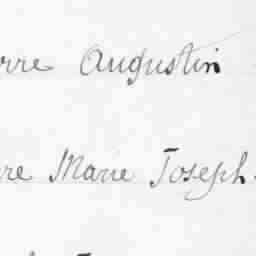 rre Augustin
re Marie Joseph.